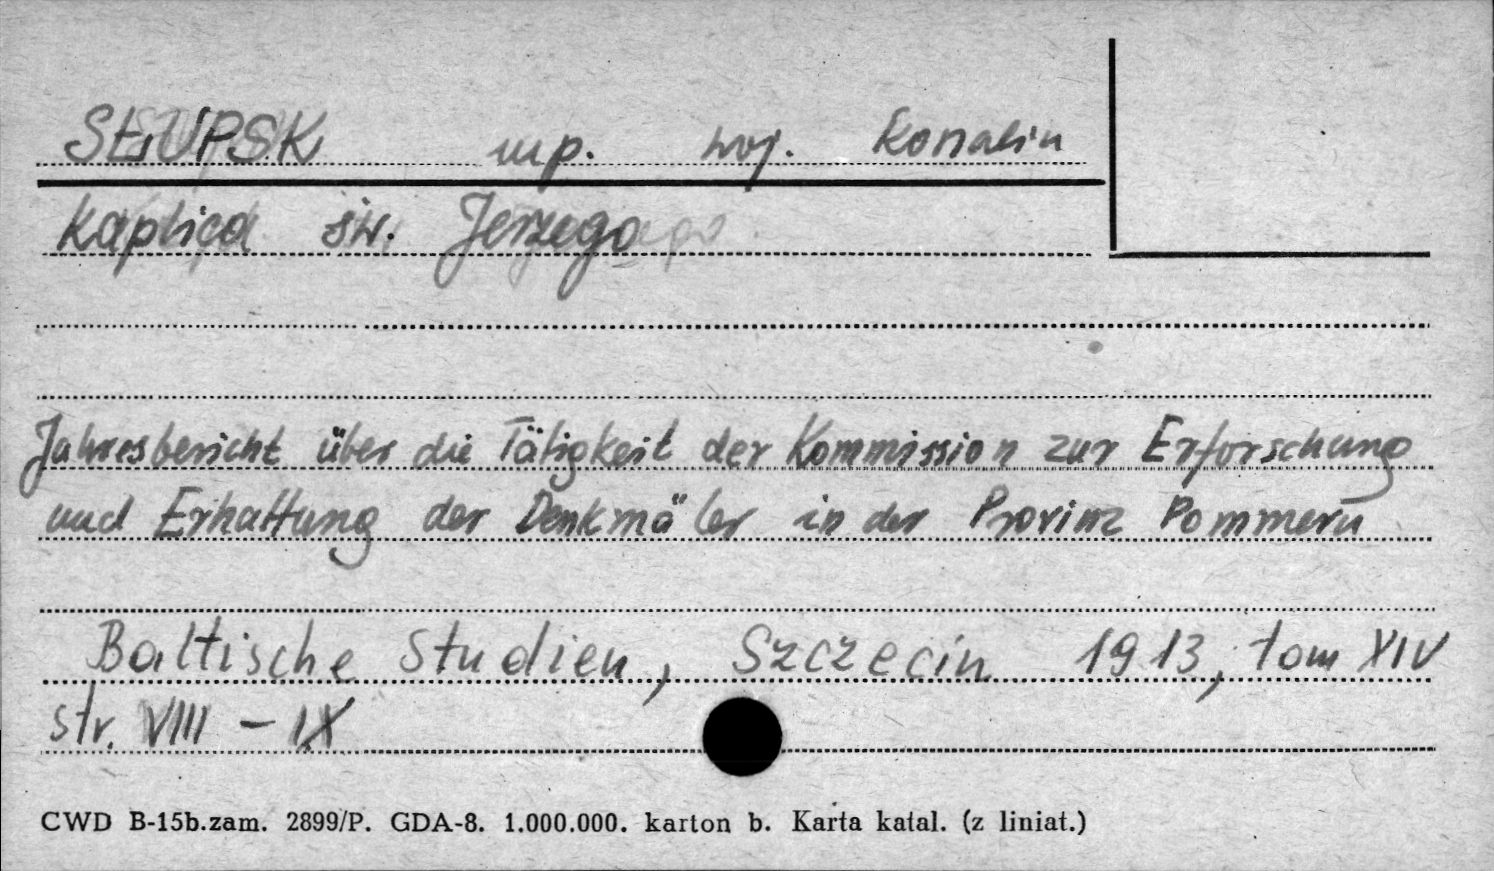 SŁUPSK mp. woj. Koszalin
Kaplica św. Jerzego
Jahresbericht über die Tätigkeit der Kommission zur Erforschung
und Erhaltung der Denkmäler in der Provinz Pommern
Baltische Studien, Szczecin 1913, tom XIV
str. VIII – IX
CWD B-15b.zam. 2899/P. GDA-8. 1.000.000. karton b. Karta katal. (z liniat.)